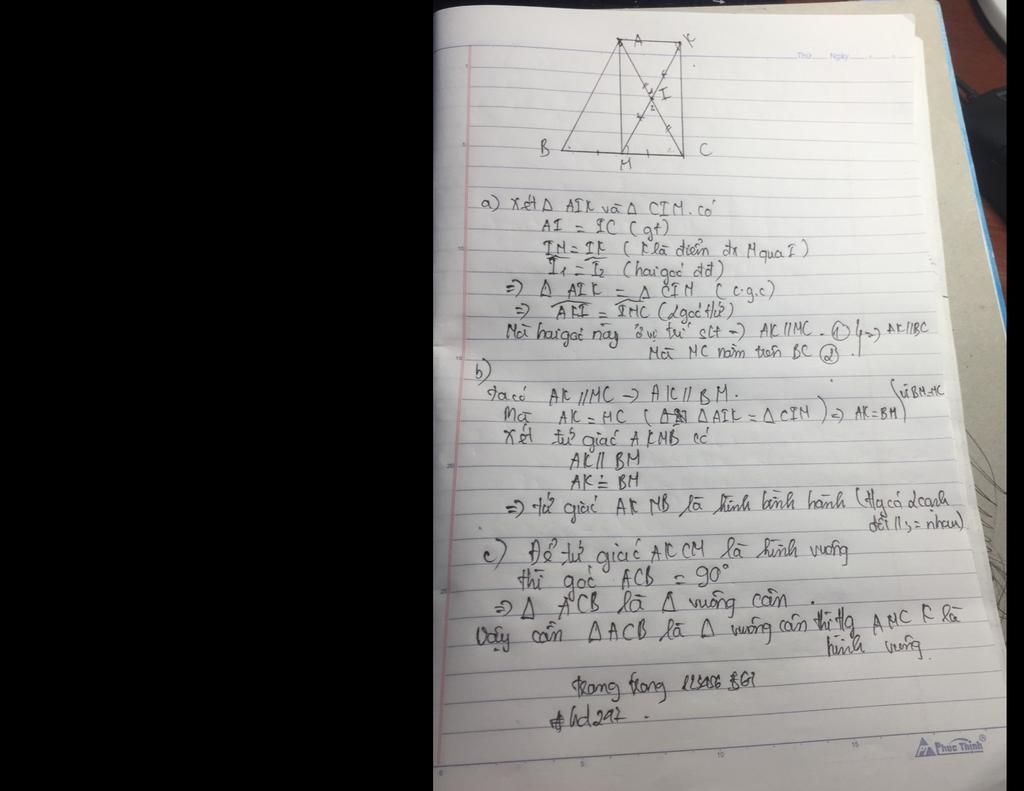 A K
I
2
B M C
Thứ Ngày
a) Xét Δ AIK và Δ CIM có
AI = IC (gt)
IM = IK (K là điểm đx M qua I)
I1 = I2 (hai góc đđ)
=> Δ AIK = Δ CIM (c.g.c)
=> AKI = IMC (2 góc t/ứ)
Mà hai góc này ở vị trí slt -> AK // MC ① => AK // BC
Mà MC nằm trên BC ②
b)
Ta có AK // MC -> AK // BM.
Mà AK = MC (Δ AIK = Δ CIM) => AK = BM (vì BM=MC
Xét tứ giác AKMB có
AK // BM
AK = BM
=> tứ giác AKMB là hình bình hành (tg có 2 cạnh
đối //, = nhau)
c) Để tứ giác AKCM là hình vuông
thì góc ACB = 90°
=> Δ ACB là Δ vuông cân.
Vậy cần ΔACB là Δ vuông cân thì tg AMCK là
hình vuông
trang trong
Phúc Thịnh